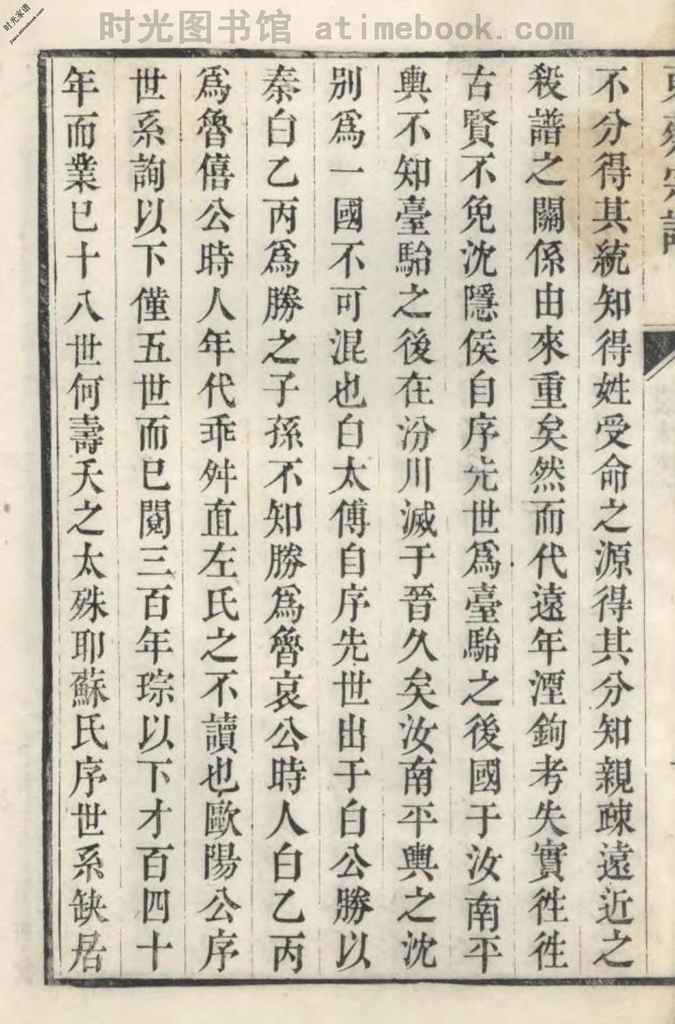 时光图书馆 atimebook.com
时光家谱
不分得其統知得姓受命之源得其分知親疎遠近之
殺譜之關係由來重矣然而代遠年湮鉤考失實徃徃
古賢不免沈隱侯自序先世爲臺駘之後國于汝南平
輿不知臺駘之後在汾川滅于晉久矣汝南平輿之沈
别爲一國不可混也白太傅自序先世出于白公勝以
秦白乙丙爲勝之子孫不知勝爲魯哀公時人白乙丙
爲魯僖公時人年代乖舛直左氏之不讀也歐陽公序
世系詢以下僅五世而已閱三百年琮以下才百四十
年而業已十八世何壽夭之太殊耶蘇氏序世系缺居